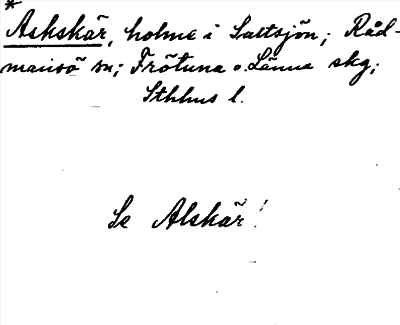 *
Askskär, holme i Saltsjön; Råd-
mansö sn; Frötuna o. Länna skg;
Sthlms l.
Se Alskär!